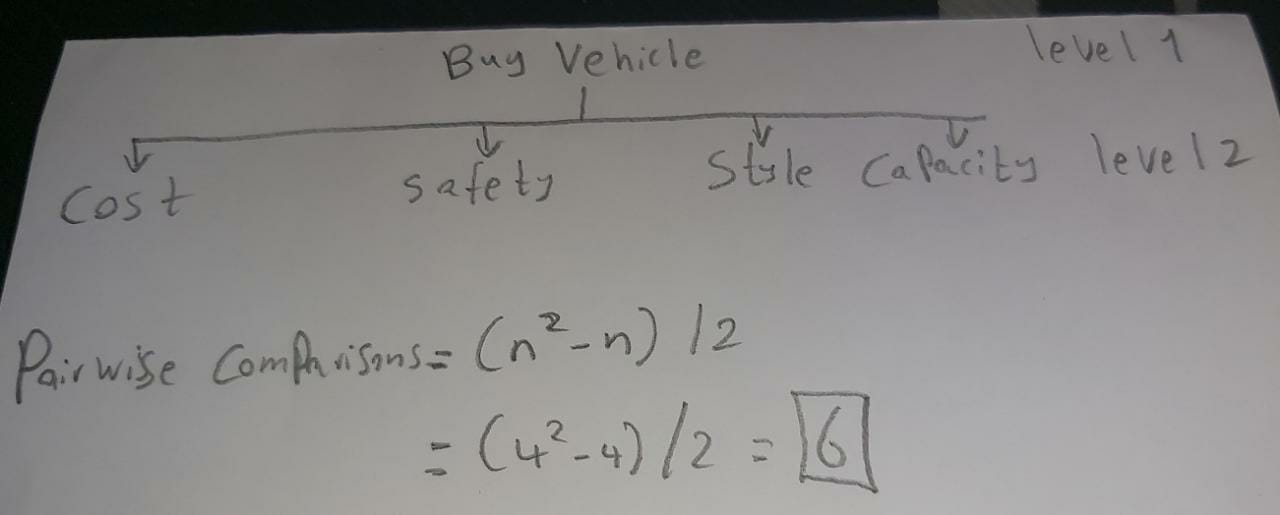 Buy Vehicle level 1
Cost safety Style Capacity level 2
Pairwise Comparisons = (n² - n) / 2
= (4² - 4) / 2 = 6